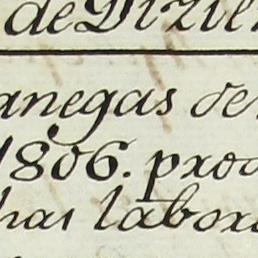 de Dizie
anegas de
1806. prod
has labor